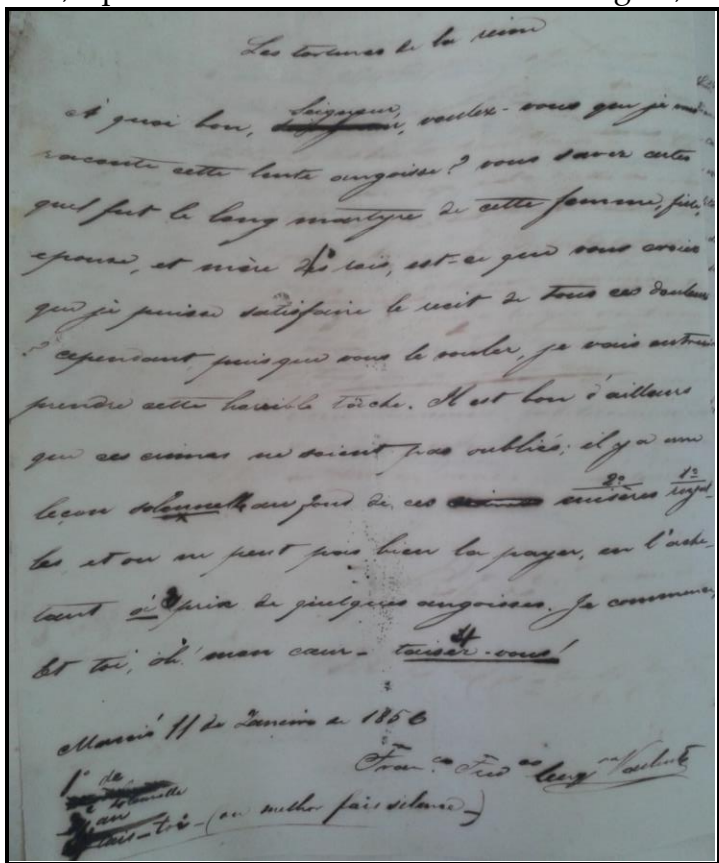 Les tortures de la reine
À quoi bon, Seigneur, voulez-vous que je vous
raconte cette lente angoisse? vous savez certes
quel fut le long martyre de cette femme, fille,
epouse, et mère des rois, est-ce que vous croiez
que je puisse satisfaire le recit de tous ces douleurs
? cependant, puisque vous le voulez, je vais entre
prendre cette horrible tâche. Il est bon d'ailleurs
que ces crimes ne soient pas oubliés; il y a une
leçon solennelle au fond de ces misères
les et on ne peut pas bien la payer, en l'ache-
tant à prix de quelques angoisses. Je commence,
Et toi, oh! mon cœur - taisez-vous!
Maceió 11 de Janeiro de 1856
1º de
2º solennelle
3º au
4º tais-toi - (ou melhor fais silence -)